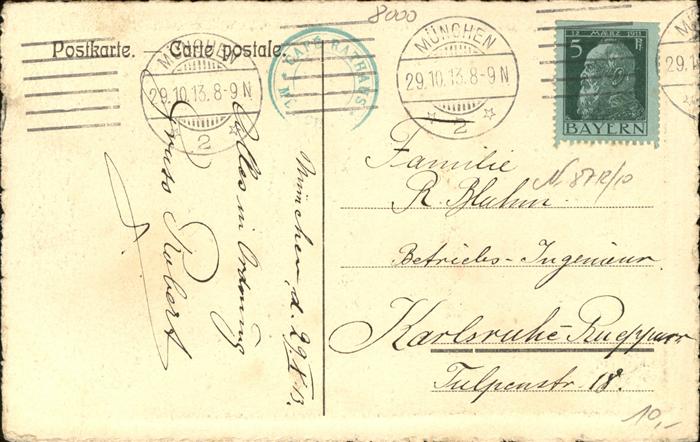 8000
Postkarte. — Carte postale.
MÜNCHEN
29.10.13.8-9N
2
CAFÉ RATHAUS
MÜNCHEN
29.10.13.8-9N
2
12. MÄRZ 1911
5 Pf
BAYERN
MÜ
29.1
München, d. 29.X.13.
Alles in Ordnung
Gruss Robert
Familie
R. Bluhm
N. 8712/10
Betriebs-Ingenieur
Karlsruhe-Rueppurr
Tulpenstr. 18.
10,-